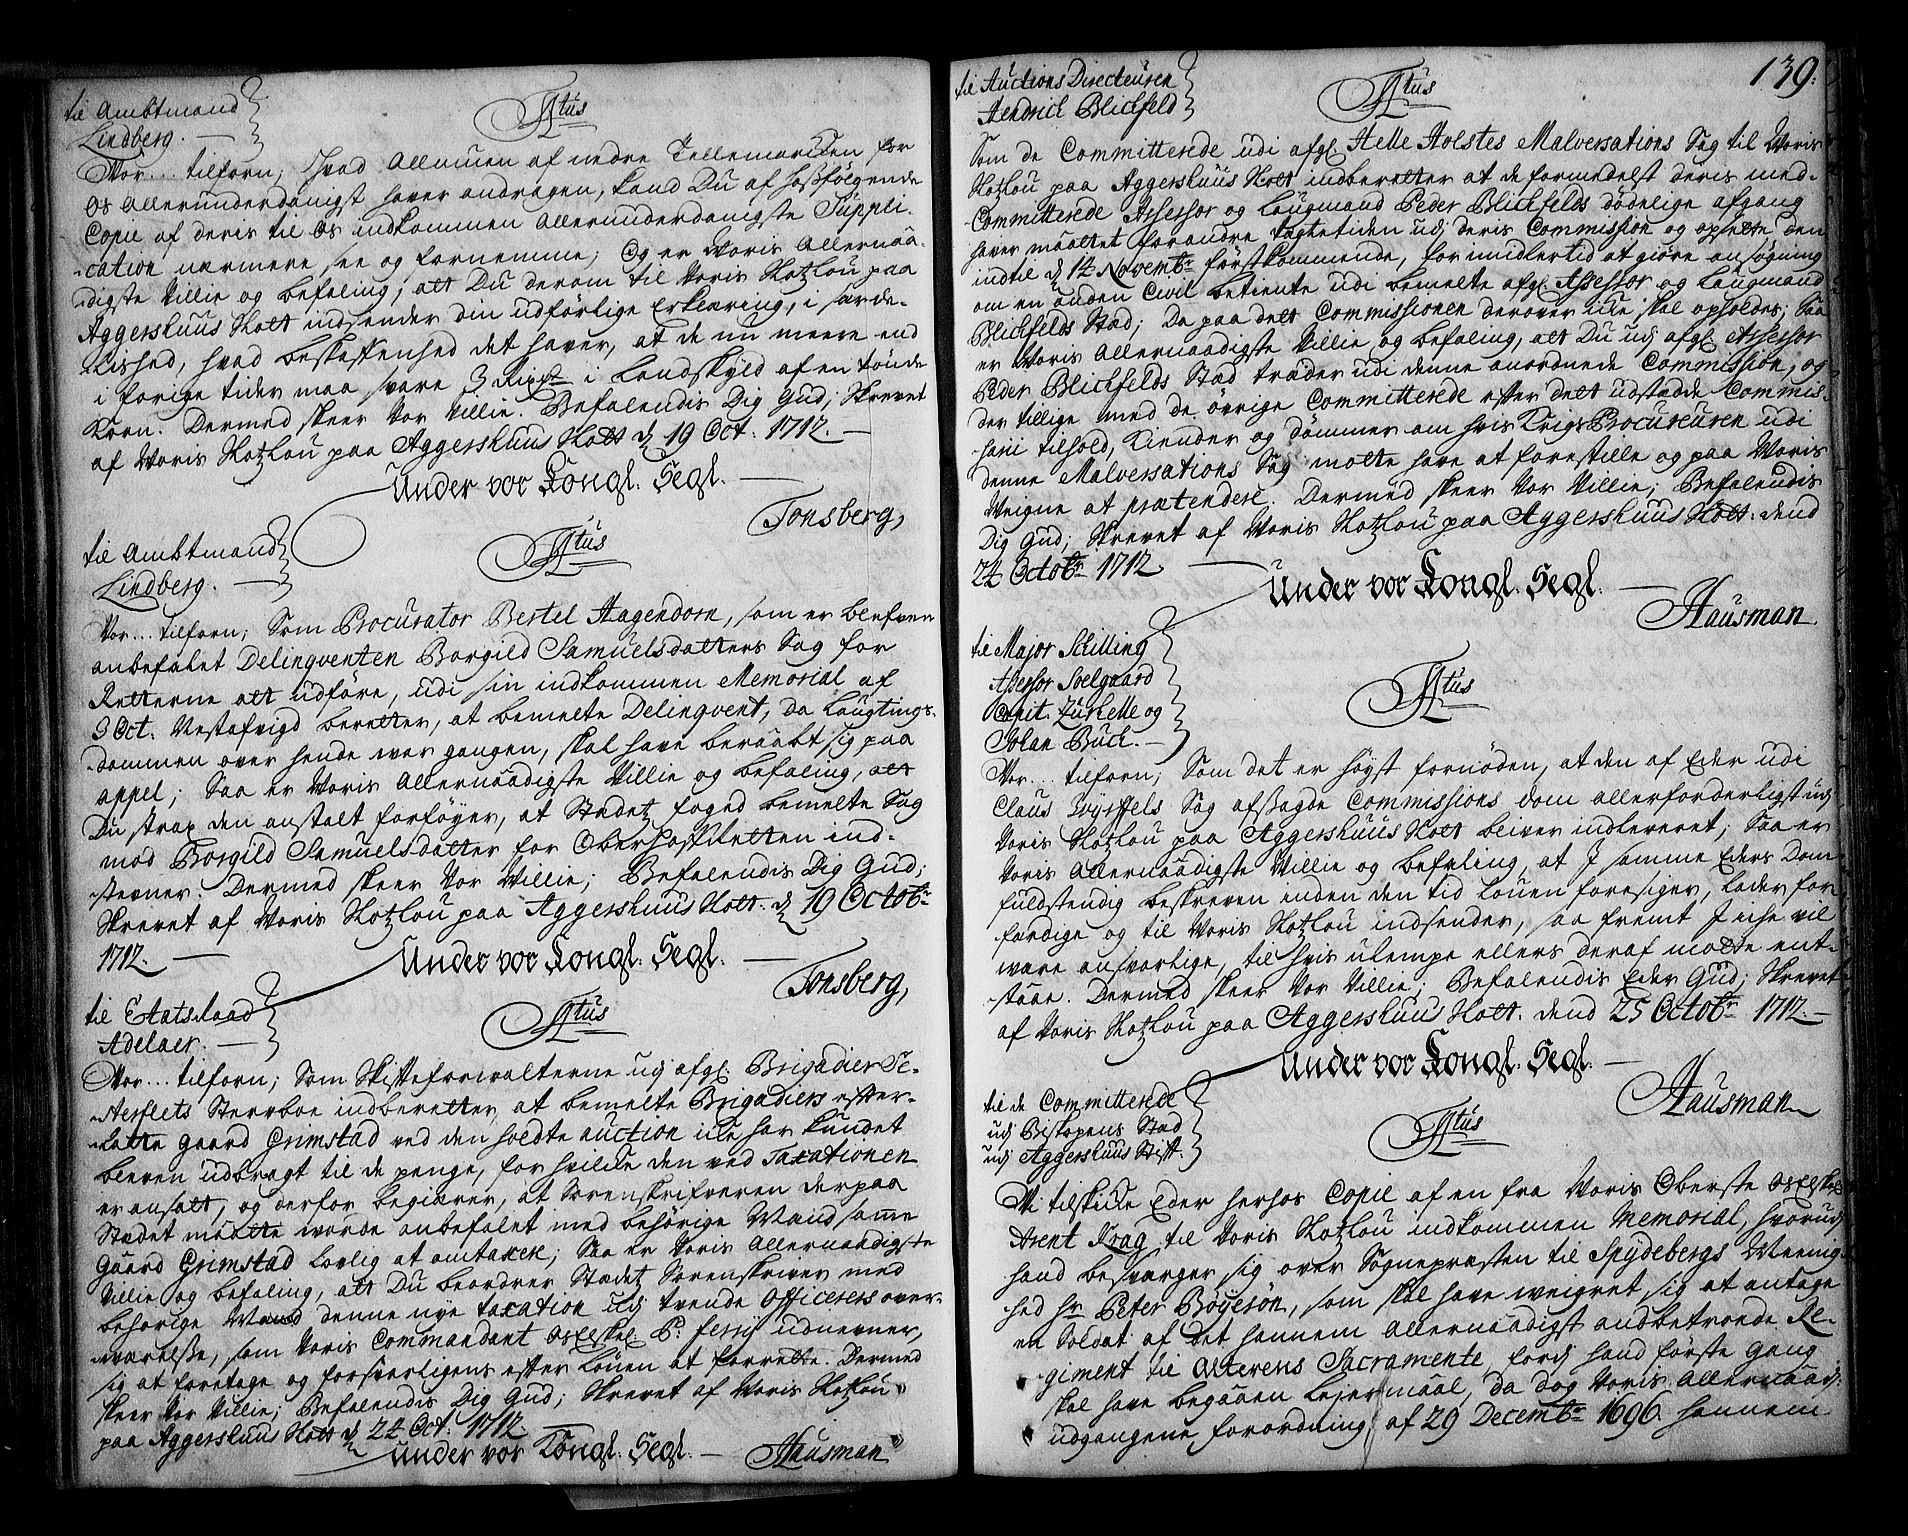 til Ambtmand
Lindberg.
Fr: 4tus
Vor... tilforn; Hvad Allmuen af nedre Tellemarcken for
Os allerunderdanigst haver andragen, kand Du af hosfølgende
Copie af deris til Os indkommen allerunderdanigste Suppli-
cation nærmere see og fornemme; Og er Voris Allernaa-
digste Villie og befaling, att Du derom til Voris Slotzlou paa
Aggershuus Slott indsender din udførlige Erklæring, i særde-
lished, hvad beskaffenhed det haver, at de nu meere end
i forige tider maa svare 3 Rixdr i Landskyld af en tønde
Korn. Dermed skeer Vor Villie. Befalendis Dig Gud; Skrevet
af Voris Slotzlou paa Aggershuus Slott d. 19 Oct. 1712.
Under vor Kongl. Segl.
Tonsberg,
til Ambtmand
Lindberg.
Fr: 4tus
Vor... tilforn; Som Procurator Bertel Hagendorn, som er blefven
anbefalet Delinqventen Borgild Samuelsdatters Sag for
Retterne att udføre, udi sin indkommen Memorial af
3 Oct. Nestafvigd beretter, at bemelte Delinqvent, da Laugtings-
dommen over hende var gangen, skal have beraabt sig paa
appel; Saa er Voris Allernaadigste Villie og befaling, att
Du strax den anstalt forføyer, at Stædetz foged bemelte Sag
mod Borgild Samuelsdatter for Oberhoffretten ind-
stevner. Dermed skeer Vor Villie; Befalendis Dig Gud;
Skrevet af Voris Slotzlou paa Aggershuus Slott. d. 19 Octobr
1712.
Under vor Kongl. Segl.
Tonsberg,
til Etatsraad
Adelaer.
Fr: 4tus
Vor... tilforn; Som Skifteforvalterne udj afgl. Brigadier
Sterboe indberetter, at bemelte Brigadiers effter-
latte gaard Grimstad ved den holdte auction icke har kundet
bleven udbragt til de penge, for hvilcke den ved Taxationen
er ansatt, og derfor begierer, at Sorenskrifveren derpaa
Stædet maatte worde anbefalet med behörige Mænd samme
gaard Grimstad lovlig at omtaxere; Saa er Voris Allernaadigste
Villie og befaling, att Du beordrer Stædetz Sorenskriver med
behörige Mænd denne nye taxation udj tvende Officerers over-
værelsse, som Voris Commandant udnevner,
sig at foretage og forsvarligens efter Louen at forrette. Dermed
skeer Vor Villie; Befalendis Dig Gud; Skrevet af Voris Slotzlou
paa Aggershuus Slott d. 22 Oct. 1712
Under vor Kongl. Segl.
Hausman
139.
til Auctions Directeuren
Hendrich Blichfeld
Fr: 4tus
Som de Committerede udi afgl. Helle Holstes Malversations Sag til Voris
Slotzlou paa Aggershuus Slott indberetter at de formedelst deris med-
Committerede Assessor og Laugmand Peder Blichfelds dödelige afgang
haver maattet forandre tægtetiden udj deris Commission og opsette den
indtil d. 14 Novembr förstkommende, for imidlertid at giöre ansögning
om en anden Civil betiente udi bemelte afgl. Assessor og Laugmand
Blichfelds Stæd; Da paa dett Commissionen derover icke skal opholdes; Saa
er Voris Allernaadigste Villie og befaling, att Du udj afgl. Assessor
Peder Blichfelds Stæd træder udi denne anordnede Commission, og
der tillige med de övrige Committerede efter dett udstædde Commis-
sorii tilhold, Kiender og dömmer om hvis Krigs Procureuren udi
denne Malversations Sag motte have at forestille og paa Voris
Veigne at prætendere. Dermed skeer Vor Villie; Befalendis
Dig Gud; Skrevet af Voris Slotzlou paa Aggershuus Slott. dend
22 Octobr 1712
Under vor Kongl. Segl.
Hausman.
til Major Schilling
Assessor Soelgaard
Capit. og
Johan Buch.
Fr: 4tus
Vor... tilforn; Som det er höyst fornöden, at den af Eder udi
Claus Sag afsagde Commissions dom allerforderligst udj
Voris Slotzlou paa Aggershuus Slott bliver indleveret; Saa er
Voris Allernaadigste Villie og befaling, at J samme Eders Dom
fuldstendig beskreven inden den tid Louen foresiger, lader for
færdige og til Voris Slotzlou indsender, saa fremt J icke vil
være ansvarlige, til hvis ulempe ellers deraf motte ent-
staae. Dermed skeer Vor Villie; Befalendis Eder Gud; Skrevet
af Voris Slotzlou paa Aggershuus Slott. dend 25 Octobr 1712.
Under vor Kongl. Segl.
Hausman
til de Committerede
udj Bispens Stæd
udj Aggershuus Stift.
Fr: 4tus
Vi tilskicke Eder herhos Copie af en fra Voris Oberste
Arent Krag til Voris Slotzlou indkommen Memorial, hvorudj
hand besværger sig over Sognepræsten til Spydebergs Meenig-
hed hr Peter Böyesøn, som skal have weigret sig at antage
en Soldat af det hannem allernaadigst andbetroede Re-
giment til Alterens Sacramente, fordj hand förste gang
skal have begaaen leiermaal, da dog Voris Allernaadj:
udgangene forordning af 29 Decembr 1696. hannem